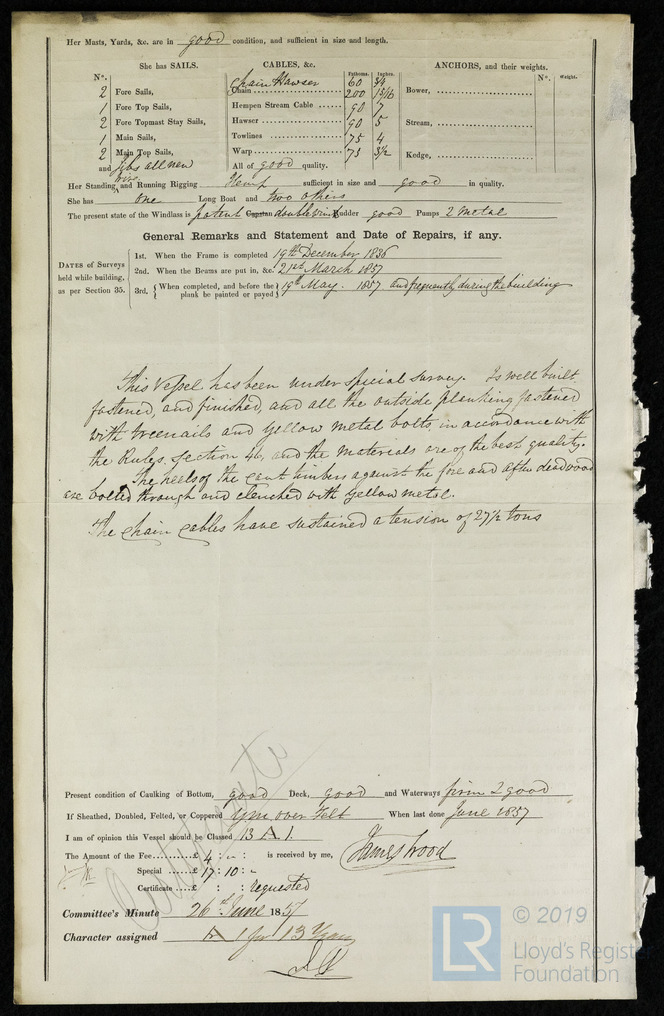 Her Masts, Yards, &c. are in good condition, and sufficient in size and length.
She has SAILS.
CABLES, &c.
ANCHORS, and their weights.
N°.
Fathoms. Inches.
N°. Weight.
Chain Hawser 60 3/4
2 Fore Sails,
Chain 200 1 5/16
Bower,
1 Fore Top Sails,
Hempen Stream Cable 90 7
2 Fore Topmast Stay Sails,
Hawser 90 5
Stream,
1 Main Sails,
Towlines 75 4
2 Main Top Sails,
Warp 73 3 1/2
Kedge,
and Jibs all new
All of good quality.
Her Standing and Running Rigging Hemp sufficient in size and good in quality.
She has one Long Boat and two others
The present state of the Windlass is patent Capstan Rudder good Pumps 2 metal
General Remarks and Statement and Date of Repairs, if any.
DATES of Surveys held while building, as per Section 35.
1st. When the Frame is completed 19th December 1836
2nd. When the Beams are put in, &c. 21st March 1857
3rd. { When completed, and before the plank be painted or payed } 19th May. 1857 and frequently during the building
This Vessel has been under special survey. Is well built
fastened, and finished, and all the outside planking fastened
with treenails and Yellow Metal bolts, in accordance with
the Rules, Section 46, and the materials are of the best quality.
The heels of the cant timbers against the fore and after deadwood
are bolted through and clenched with Yellow metal.
The chain cables have sustained a tension of 27 1/2 tons
Present condition of Caulking of Bottom, good Deck, good and Waterways firm & good
If Sheathed, Doubled, Felted, or Coppered Ym over Felt When last done June 1857
I am of opinion this Vessel should be Classed 13 A 1.
The Amount of the Fee £ 4 : - : is received by me, James Wood
Special £ 17 : 10 : -
Certificate £ : : requested
Committee's Minute 26th June 1857
Character assigned A 1 for 13 Years
LR
© 2019
Lloyd's Register
Foundation